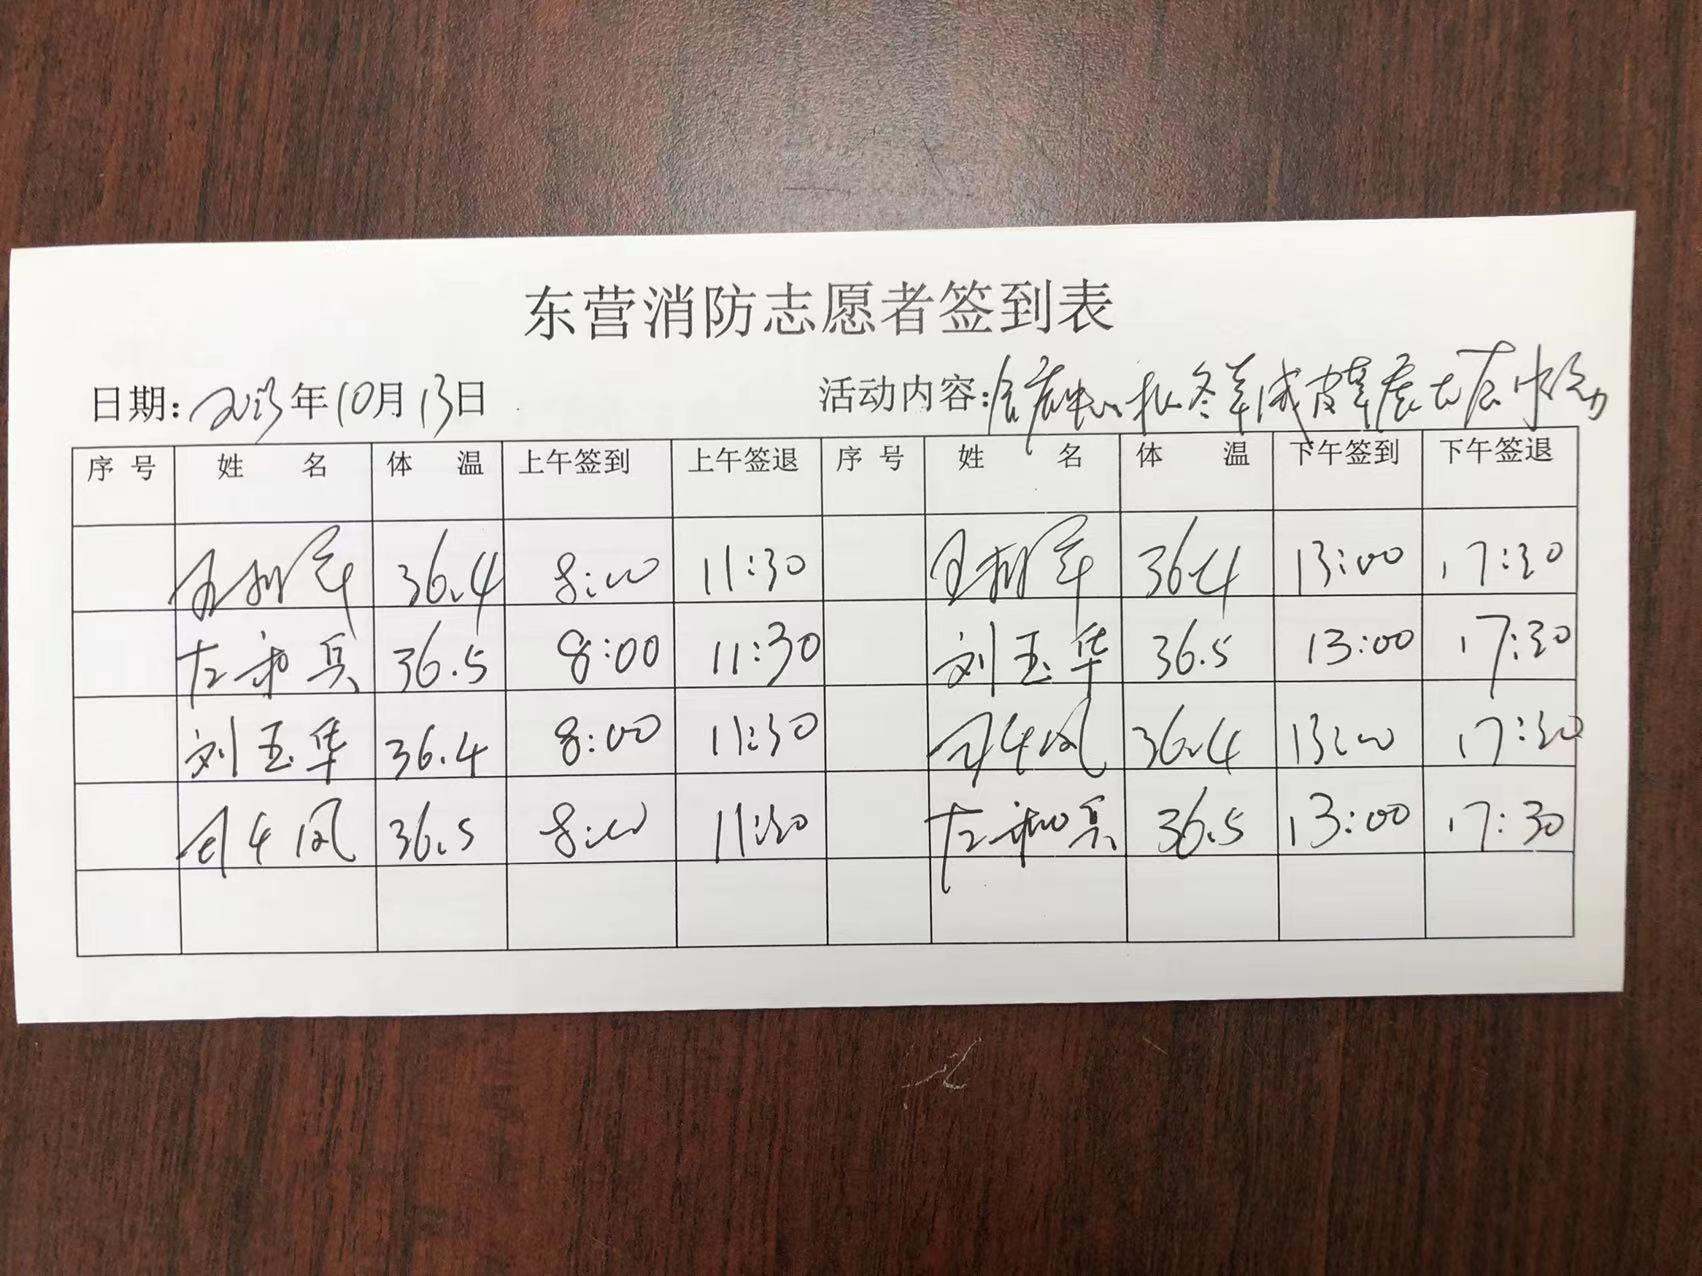 东营消防志愿者签到表
日期: 2023年10月13日 活动内容:
序号 姓名 体温 上午签到 上午签退 序号 姓名 体温 下午签到 下午签退
36.4 8:00 11:30 36.4 13:00 17:30
左和兵 36.5 8:00 11:30 刘玉华 36.5 13:00 17:30
刘玉华 36.4 8:00 11:30 36.4 13:00 17:30
36.5 8:00 11:30 左和兵 36.5 13:00 17:30